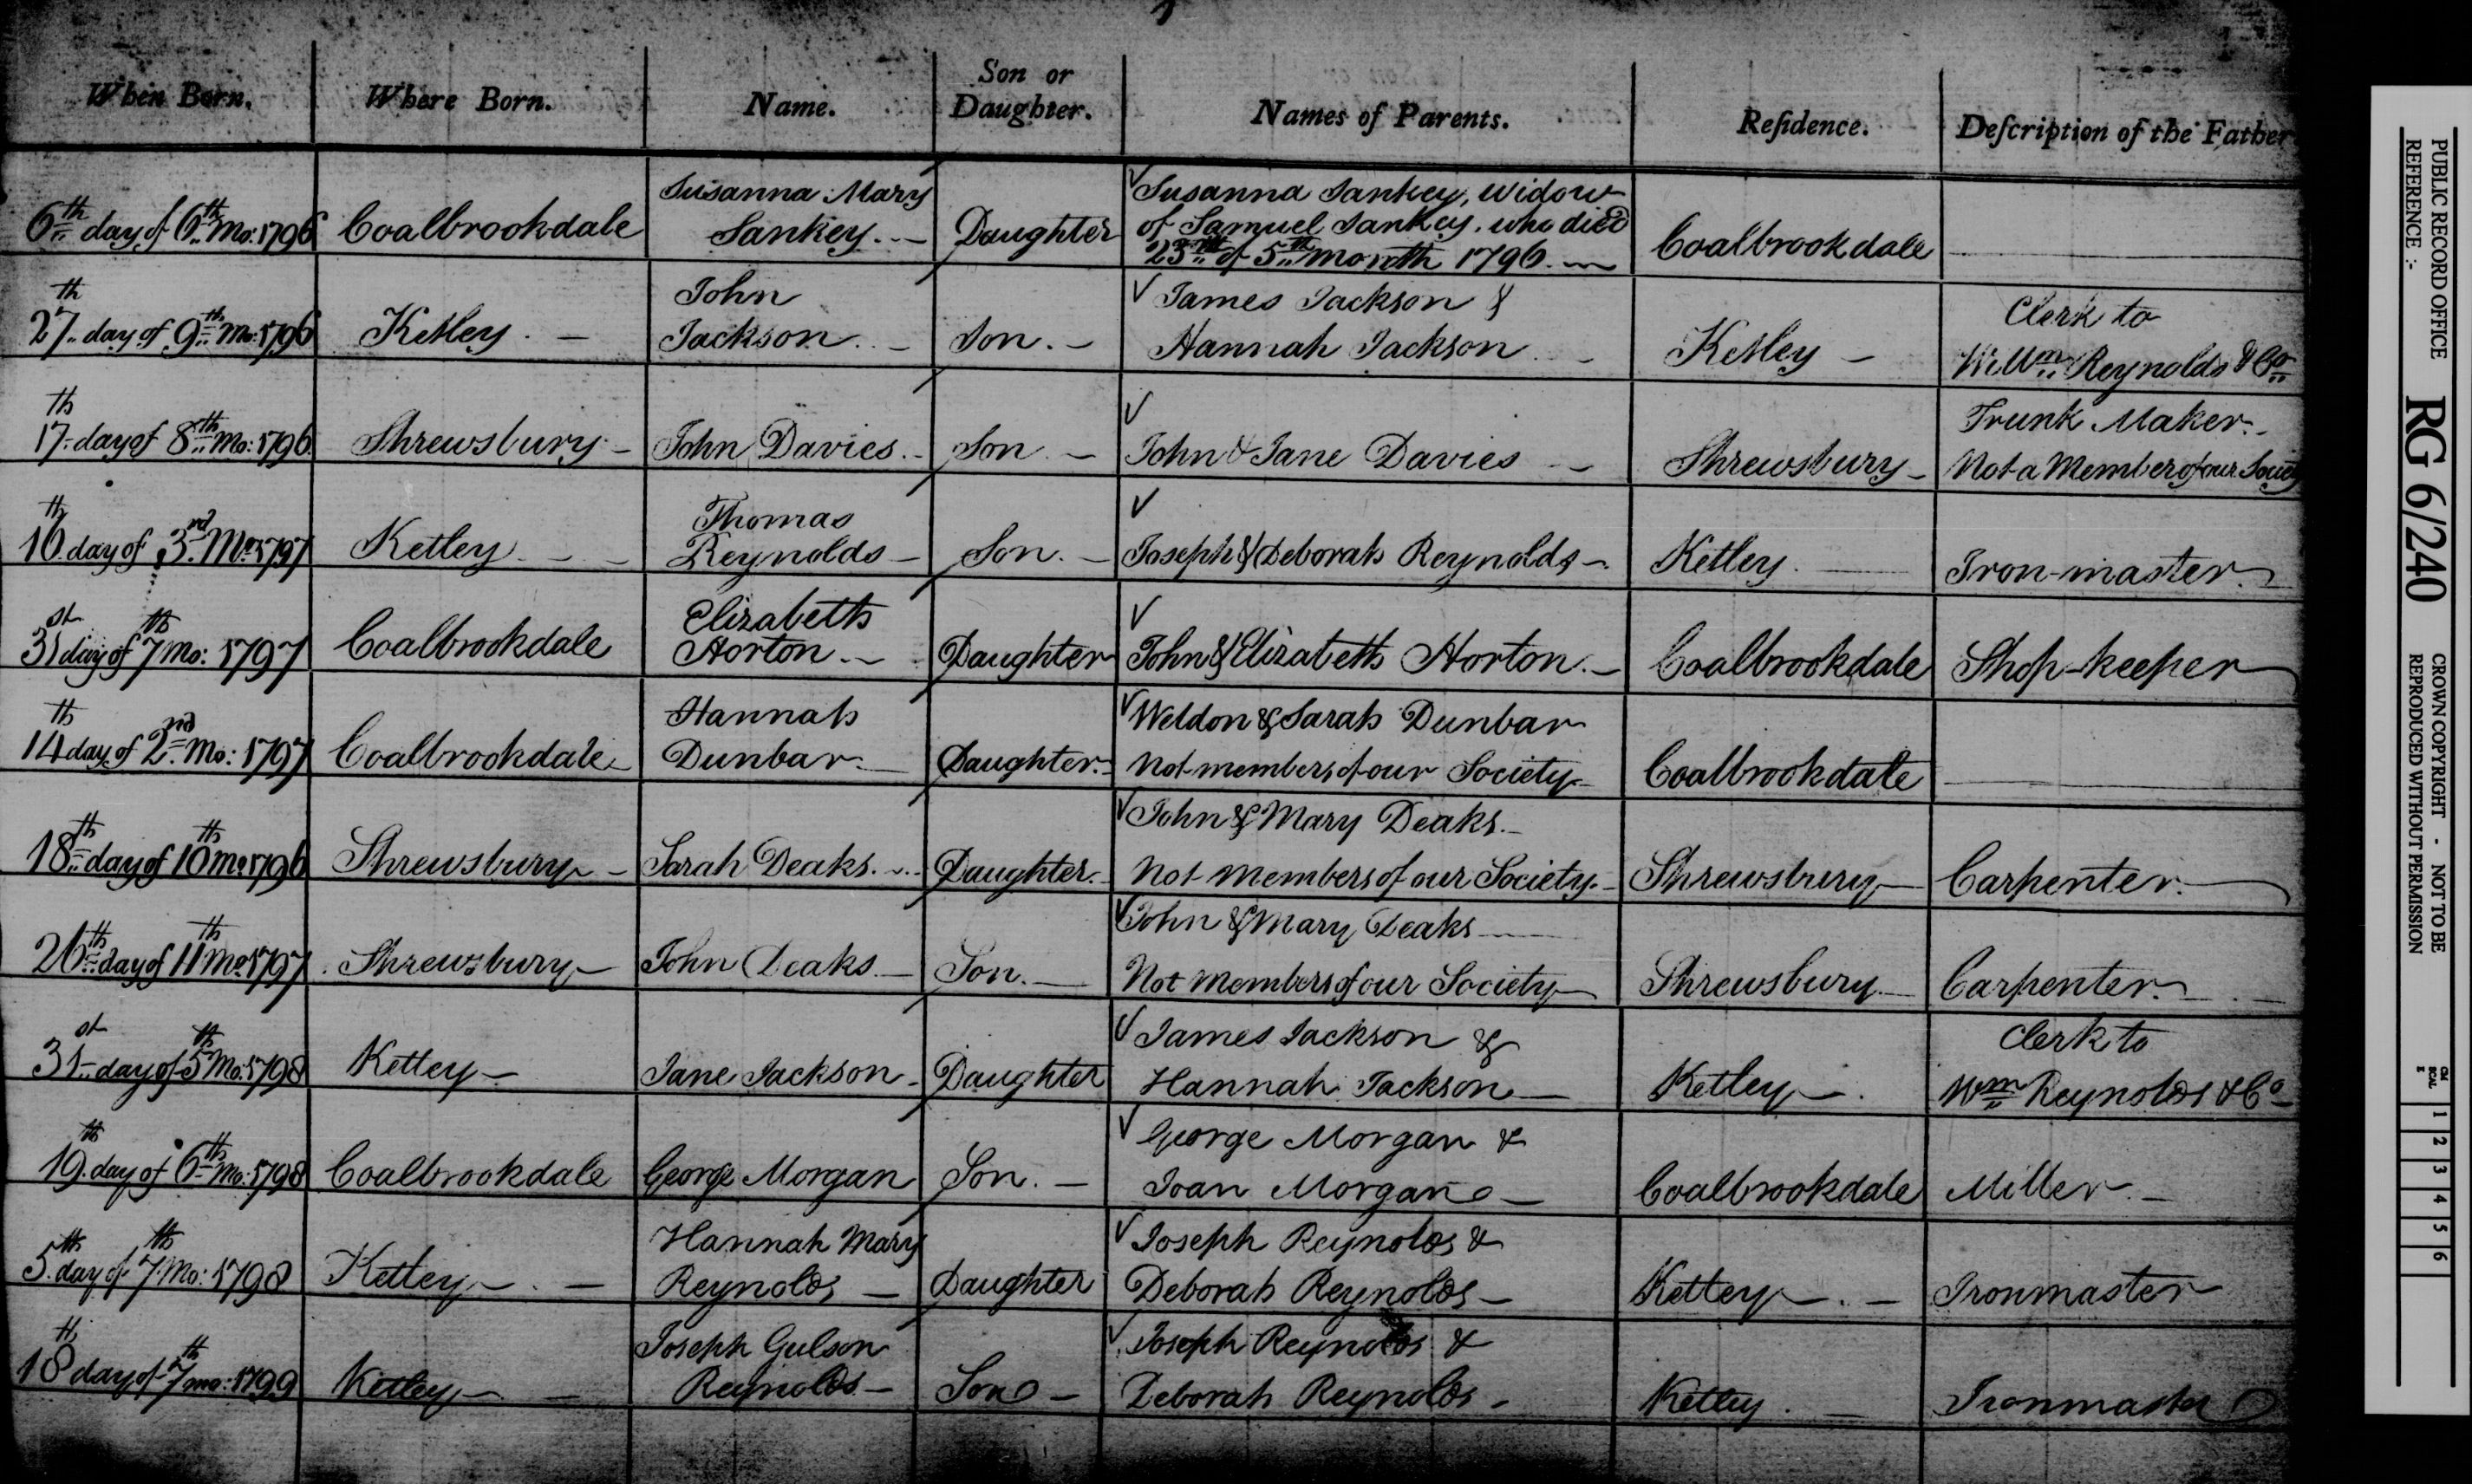 When Born.
Where Born.
Name.
Son or
Daughter.
Names of Parents.
Reſidence.
Deſcription of the Father
6th day of 6th Mo: 1796
Coalbrookdale
Susanna Mary
Sankey.
Daughter
Susanna Sankey, Widow
of Samuel Sankey, who died
23rd of 5th month 1796.
Coalbrookdale
27th day of 9th Mo: 1796
Ketley.
John
Jackson.
Son.
James Jackson &
Hannah Jackson
Ketley
Clerk to
Willm Reynolds & Co
17th day of 8th Mo: 1796
Shrewsbury
John Davies.
Son
John & Jane Davies
Shrewsbury
Trunk Maker.
Not a Member of our Society
16th day of 3rd Mo 1797
Ketley
Thomas
Reynolds
Son.
Joseph & Deborah Reynolds
Ketley.
Iron-master
31st day of 7th Mo: 1797
Coalbrookdale
Elizabeth
Horton
Daughter
John & Elizabeth Horton.
Coalbrookdale
Shop-keeper
14th day of 2nd Mo: 1797
Coalbrookdale
Hannah
Dunbar
Daughter.
Weldon & Sarah Dunbar
not members of our Society
Coalbrookdale
18th day of 10th Mo 1796
Shrewsbury
Sarah Deaks.
Daughter.
John & Mary Deaks.
not members of our Society.
Shrewsbury
Carpenter.
26th day of 11th Mo 1797
Shrewsbury
John Deaks.
Son.
John & Mary Deaks
Not members of our Society
Shrewsbury
Carpenter.
31st day of 5th Mo: 1798
Ketley
Jane Jackson
Daughter
James Jackson &
Hannah Jackson
Ketley
Clerk to
Wm Reynolds & Co
19th day of 6th Mo: 1798
Coalbrookdale
George Morgan
Son.
George Morgan &
Joan Morgan
Coalbrookdale
Miller.
5th day of 7th Mo: 1798
Ketley
Hannah Mary
Reynolds
Daughter
Joseph Reynolds &
Deborah Reynolds
Ketley
Ironmaster
18th day of 7th mo: 1799
Ketley
Joseph Gulson
Reynolds
Son
Joseph Reynolds &
Deborah Reynolds
Ketley.
Ironmaster
PUBLIC RECORD OFFICE
REFERENCE :-
RG 6/240
CROWN COPYRIGHT - NOT TO BE
REPRODUCED WITHOUT PERMISSION
CM
SCALE
1 2 3 4 5 6